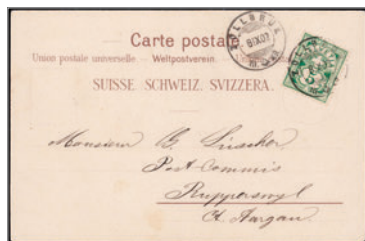 Carte postale
Union postale universelle. — Weltpostverein. —
SUISSE. SCHWEIZ. SVIZZERA.
ZOLLBRÜCK
Monsieur
Post-Commis
Rupperswyl
Ct. Aargau.